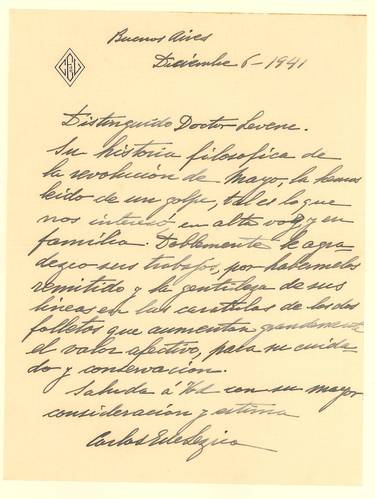 Buenos Aires
Diciembre 6-1941
Distinguido Doctor Levene.
Su historia filosofica de
la revolución de Mayo, la hemos
leido de un golpe, tal es lo que
nos interesó, en alta voz y en
familia. Doblemente le agra
dezco sus trabajos, por habermelos
remitido y la gentileza de sus
lineas en las caratulas de los dos
folletos que aumentan grandemente
el valor afectivo, para su cuida
do y conservación.
Saluda á Vd con su mayor
consideración y estima
Carlos